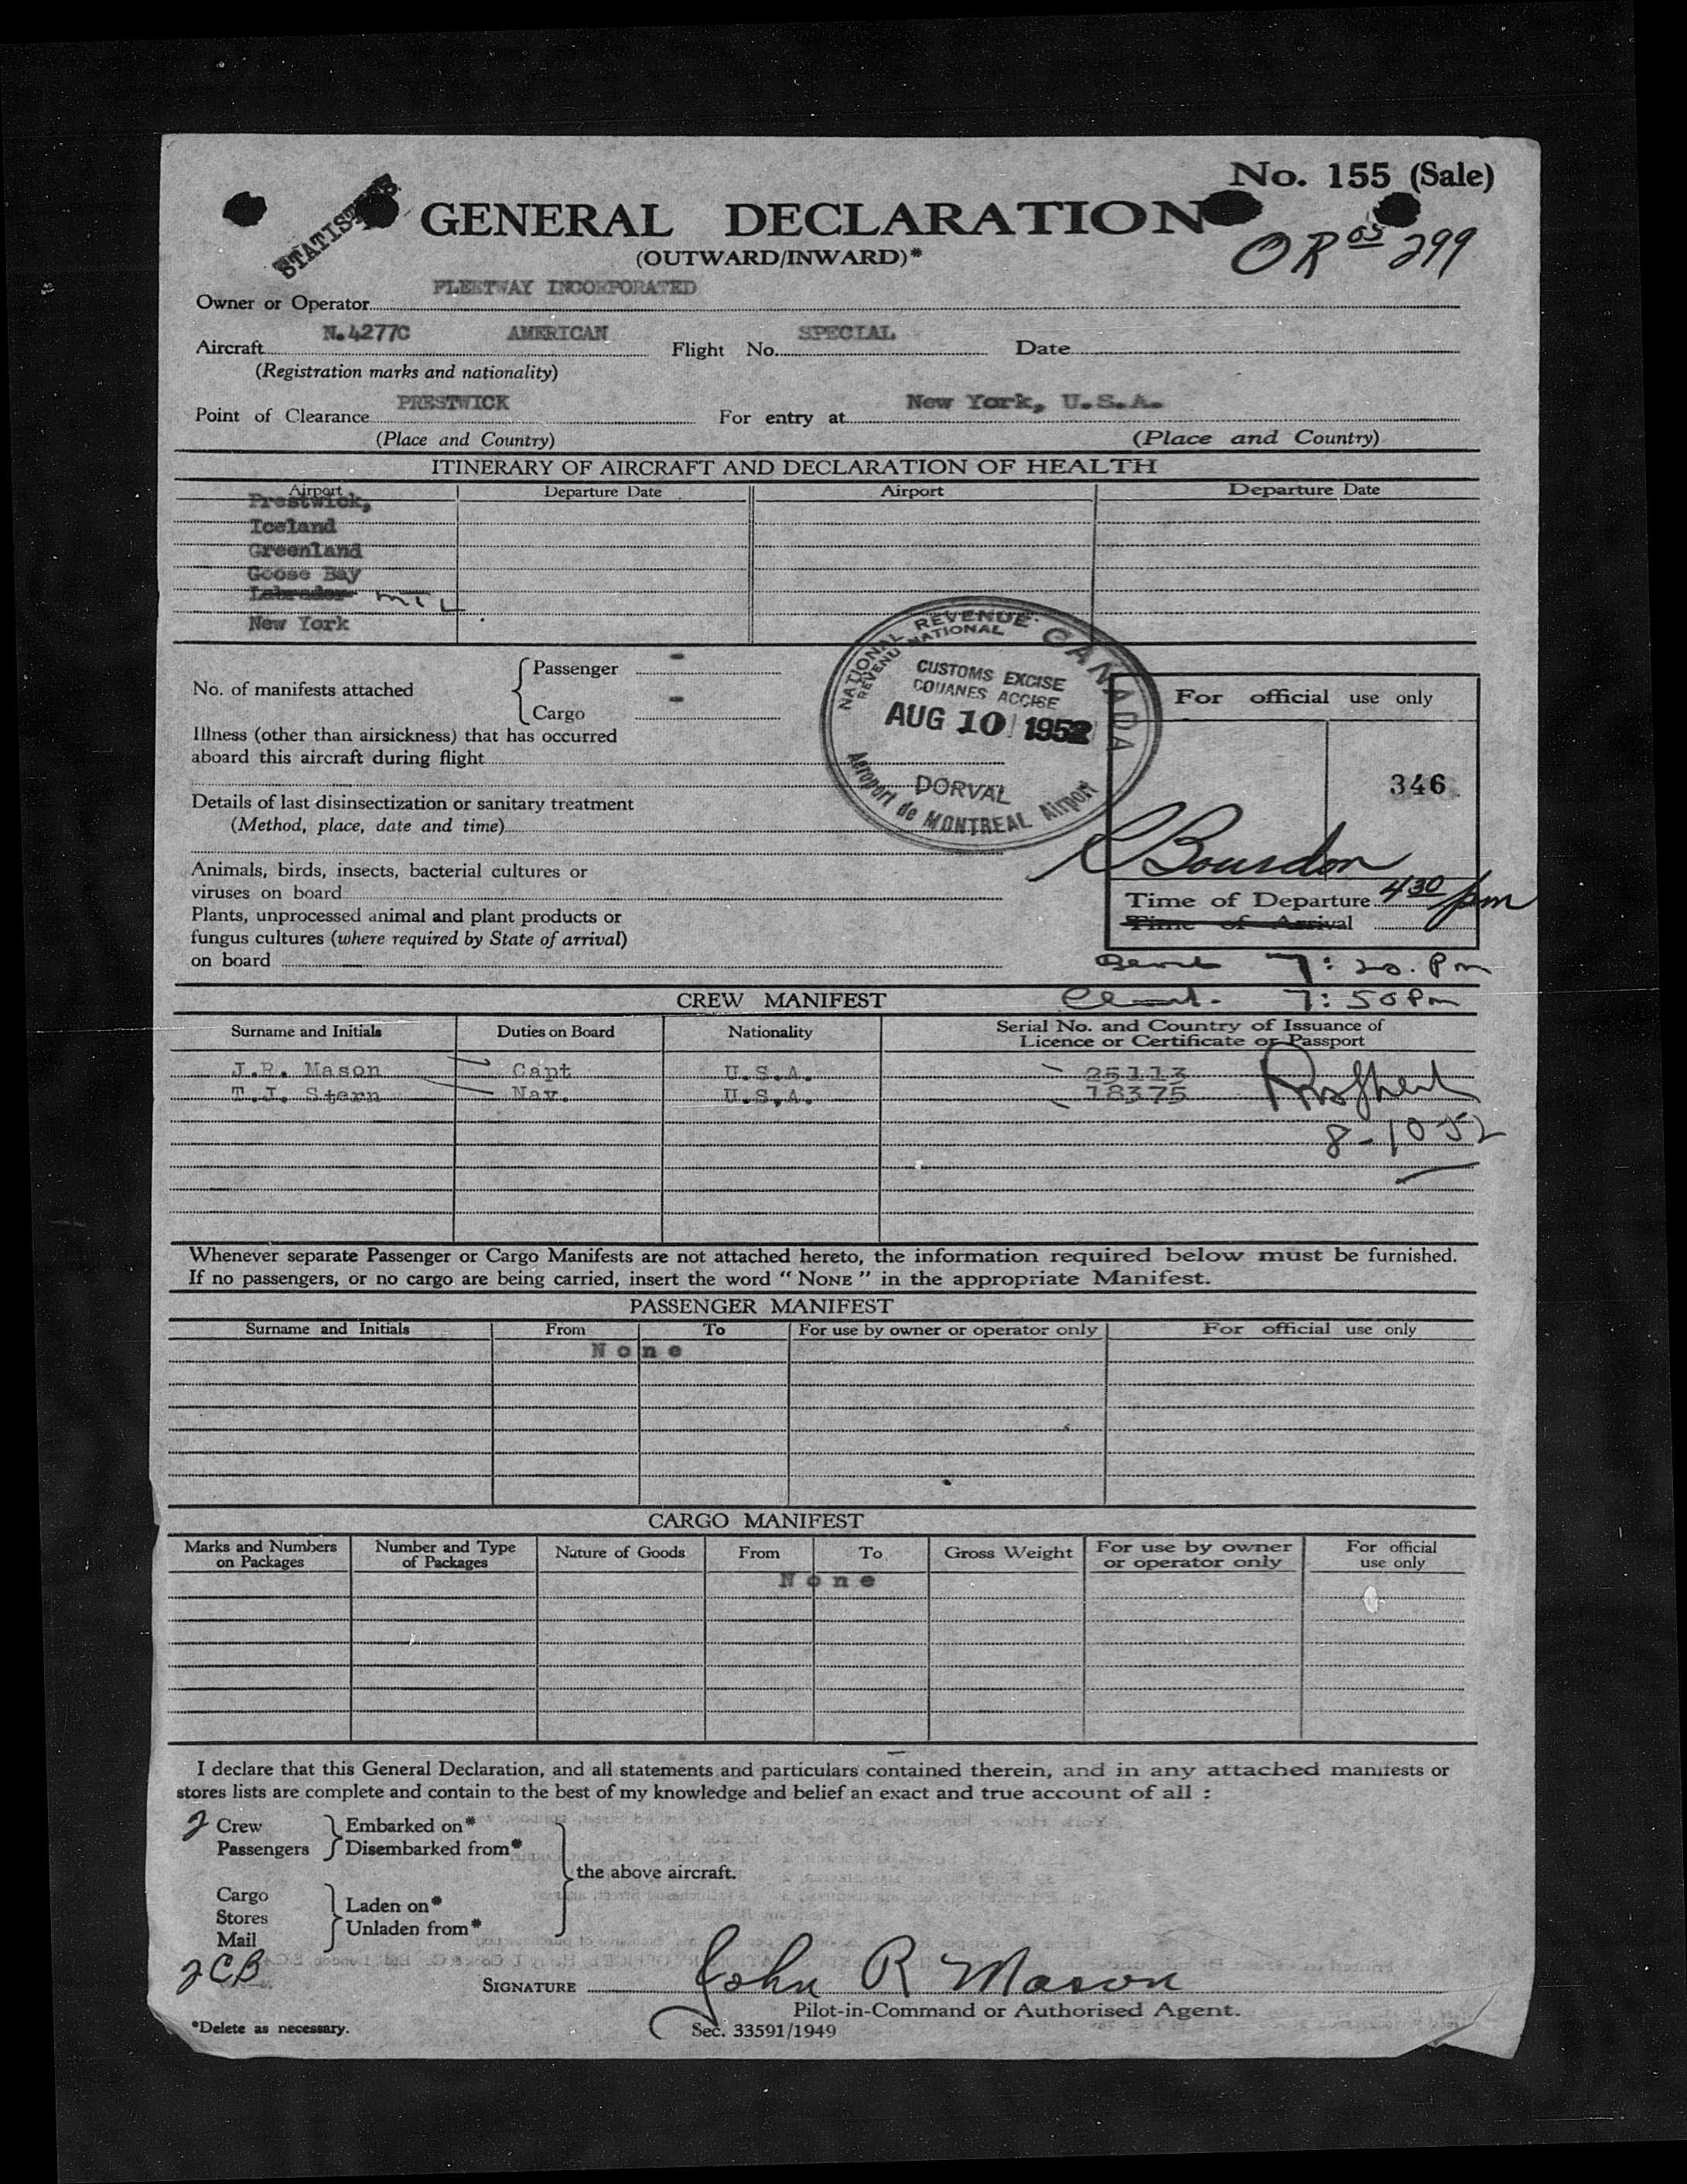 No. 155 (Sale)
STATISTICS
GENERAL DECLARATION
OR 65 299
(OUTWARD/INWARD)*
FLEETWAY INCORPORATED
Owner or Operator
N.4277C AMERICAN SPECIAL
Aircraft Flight No. Date
(Registration marks and nationality)
PRESTWICK New York, U.S.A.
Point of Clearance For entry at
(Place and Country) (Place and Country)
ITINERARY OF AIRCRAFT AND DECLARATION OF HEALTH
Airport Departure Date Airport Departure Date
Prestwick,
Iceland
Greenland
Goose Bay
Labrador MTL
New York
NATIONAL REVENUE CANADA
REVENU NATIONAL
CUSTOMS EXCISE
DOUANES ACCISE
AUG 10 1952
DORVAL
Aéroport de MONTREAL Airport
No. of manifests attached
Passenger -
Cargo -
For official use only
346
Illness (other than airsickness) that has occurred
aboard this aircraft during flight
Details of last disinsectization or sanitary treatment
(Method, place, date and time)
Bourdon
Animals, birds, insects, bacterial cultures or
viruses on board
Time of Departure 4 30 pm
Time of Arrival
Plants, unprocessed animal and plant products or
fungus cultures (where required by State of arrival)
on board
7:20. Pm
7:50 Pm
CREW MANIFEST
Surname and Initials Duties on Board Nationality Serial No. and Country of Issuance of
Licence or Certificate or Passport
J.R. Mason Capt U.S.A. 25113
T.J. Stern Nav. U.S.A. 18375
8-10 52
Whenever separate Passenger or Cargo Manifests are not attached hereto, the information required below must be furnished.
If no passengers, or no cargo are being carried, insert the word “ NONE ” in the appropriate Manifest.
PASSENGER MANIFEST
Surname and Initials From To For use by owner or operator only For official use only
None
CARGO MANIFEST
Marks and Numbers on Packages Number and Type of Packages Nature of Goods From To Gross Weight For use by owner or operator only For official use only
None
I declare that this General Declaration, and all statements and particulars contained therein, and in any attached manifests or
stores lists are complete and contain to the best of my knowledge and belief an exact and true account of all :
2 Crew Embarked on*
Passengers Disembarked from*
the above aircraft.
Cargo
Stores Laden on*
Mail Unladen from*
2CB
SIGNATURE John R Mason
Pilot-in-Command or Authorised Agent.
*Delete as necessary. Sec. 33591/1949